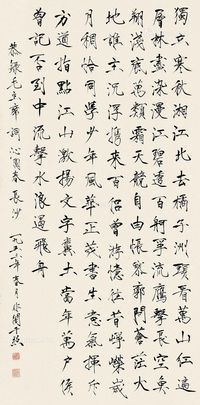 獨立寒秋湘江北去橘子洲頭看萬山紅遍
層林盡染漫江碧透百舸爭流鷹擊長空魚
翔淺底萬類霜天競自由悵寥廓問蒼茫大
地誰主沉浮攜來百侶曾遊憶往昔崢嶸歲
月稠恰同學少年風華正茂書生意氣揮斥
方遒指點江山激揚文字糞土當年萬戶侯
曾記否到中流擊水浪遏飛舟
恭錄毛主席詞沁園春長沙